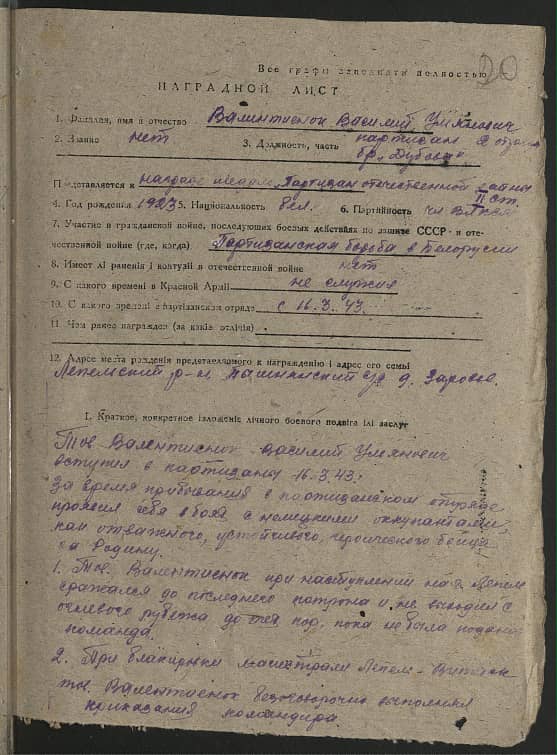 20
Все графы заполнять полностью
НАГРАДНОЙ ЛИСТ
1. Фамилия, имя и отчество Валентиснок Василий Ульянович
2. Звание нет 3. Должность, часть партизан 2 отряда
бр. „Дубова"
Представляется к награде медаль „Партизан отечественной войны
II ст.
4. Год рождения 1923 5. Национальность бел. 6. Партийность чл ВЛКСМ
7. Участие в гражданской войне, последующих боевых действиях по защите СССР и оте-
чественной войне (где, когда) Партизанская борьба в Белоруссии
8. Имеет лі раненія і контузіі в отечественной войне нет
9. С какого времені в Красной Арміі не служил
10. С какого временi в партізанском отряде с 16.3.43.
11. Чем ранее награжден (за какіе отлічія)
12. Адрес места рожденія представляемого к награжденію і адрес его семьі
Лепельский р-н, с/с д. Заровье.
I. Краткое, конкретное ізложеніе лічного боевого подвіга ілі заслуг
Тов. Валентиснок Василий Ульянович
вступил в партизаны 16.3.43.
За время прибывания в партизанском отряде
проявил себя в боях с немецкими оккупантами,
как отважного, устойчивого, героического бойца
за Родину.
1. Тов. Валентиснок при наступлении на г. Лепель
сражался до последнего патрона и не выходил с
огневого рубежа до тех пор, пока не была подана
команда.
2. При блокировки магистрали Лепель - Витебск
тов. Валентиснок безоговорочно выполнял
приказания командира.